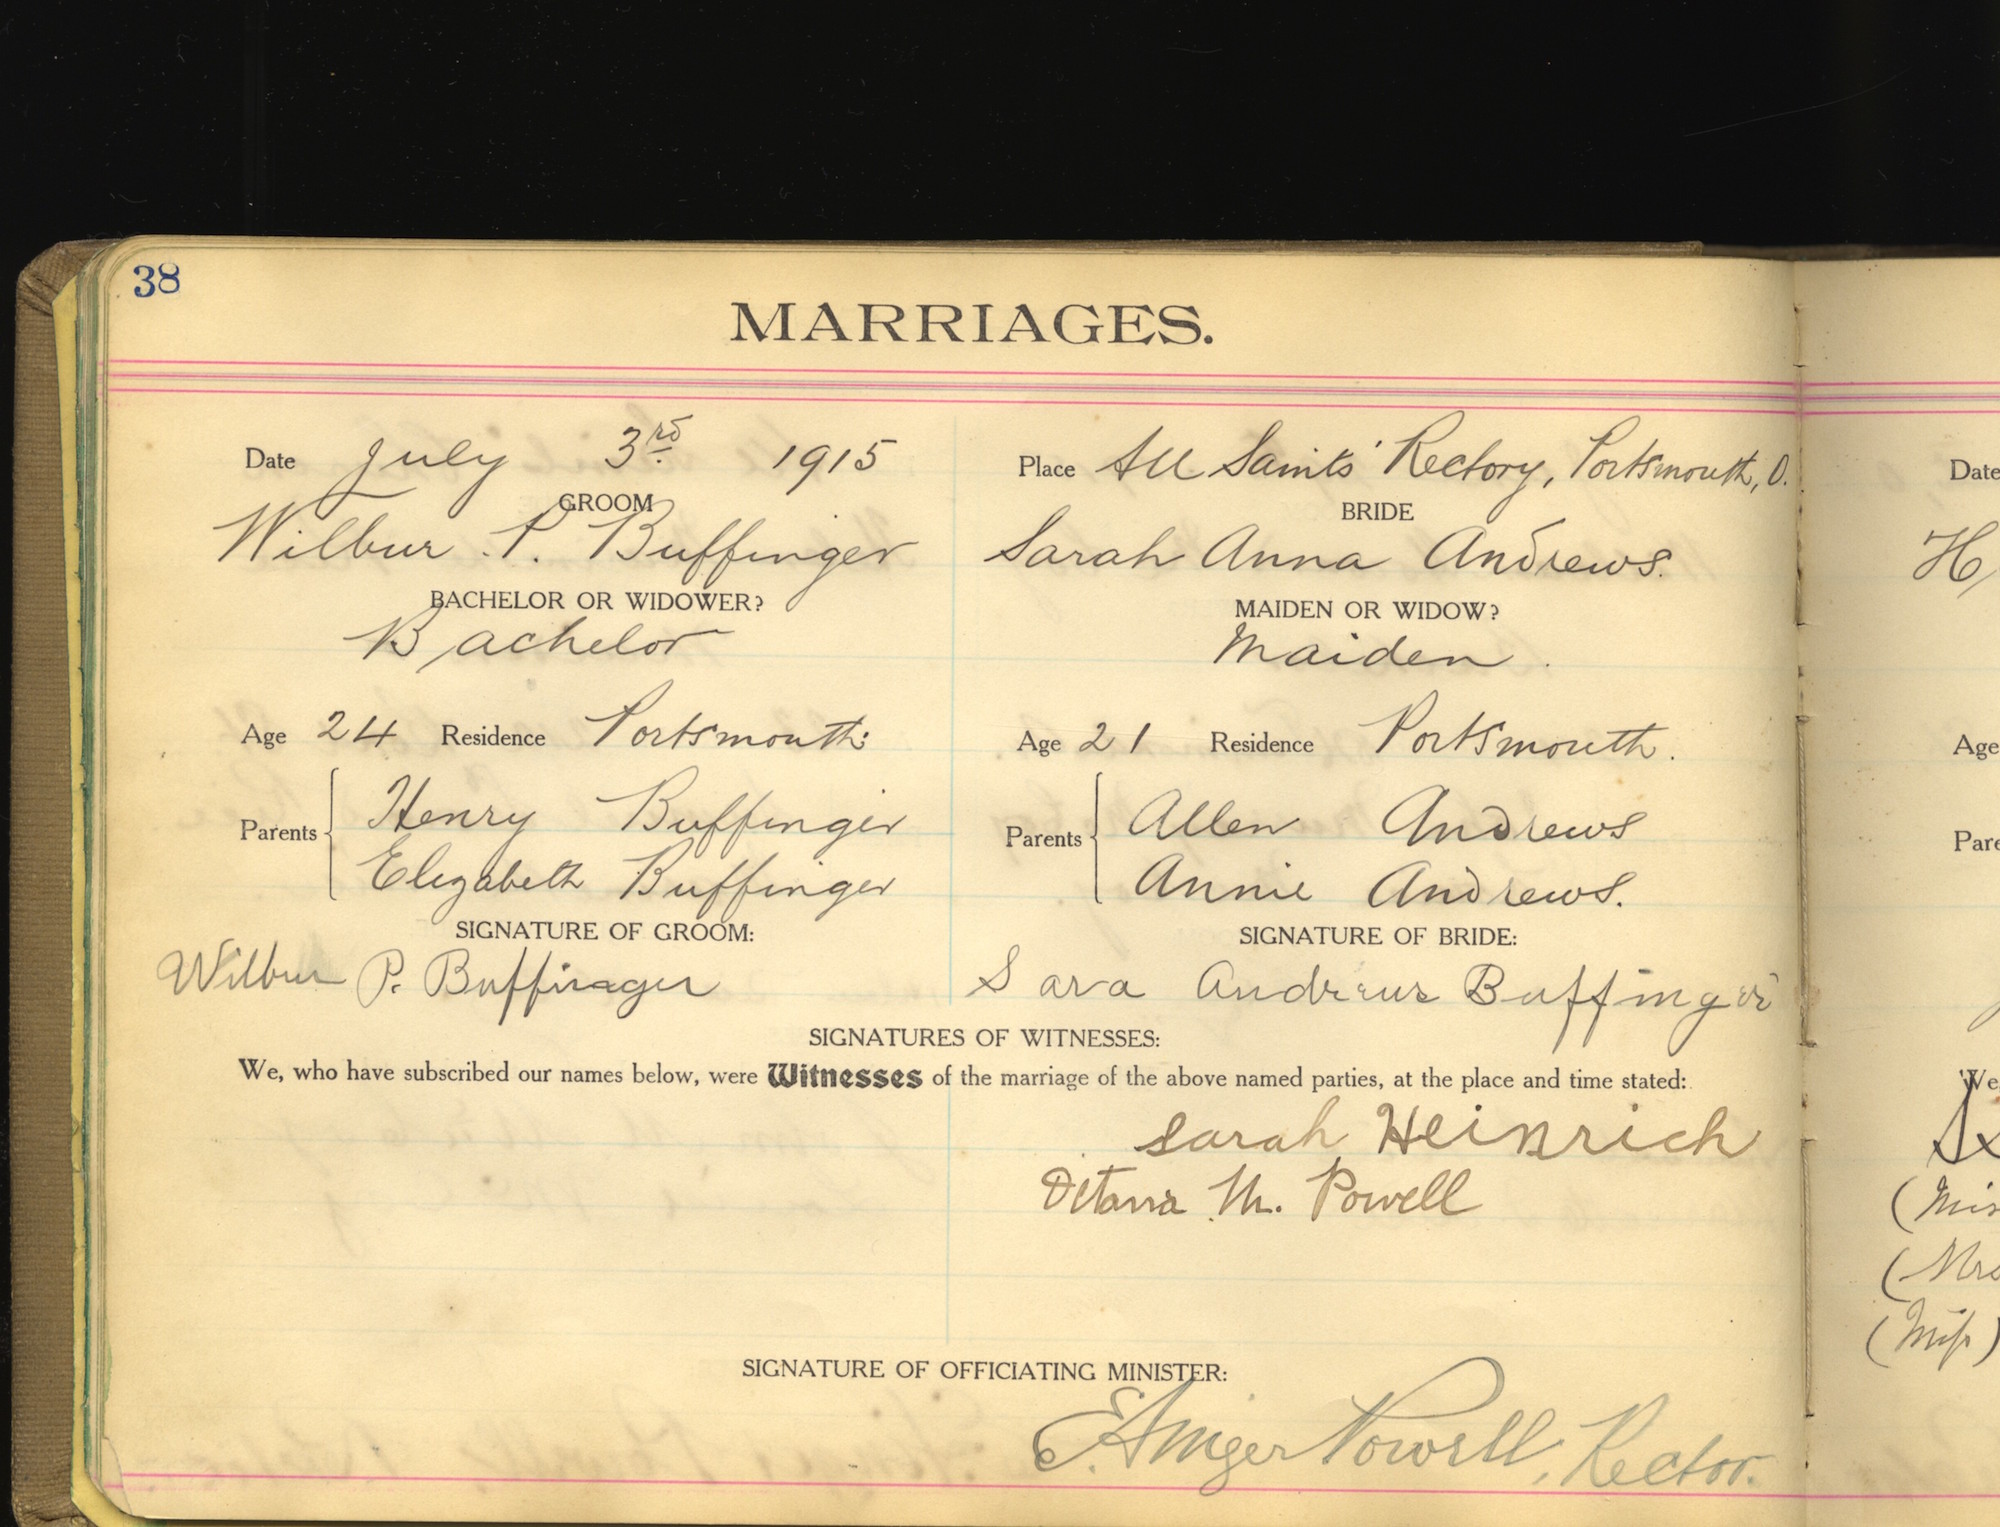 38
MARRIAGES.
Date July 3rd. 1915
Place All Saints' Rectory, Portsmouth, O.
GROOM
Wilbur P. Buffinger
BRIDE
Sarah Anna Andrews.
BACHELOR OR WIDOWER?
Bachelor
MAIDEN OR WIDOW?
Maiden.
Age 24 Residence Portsmouth.
Age 21 Residence Portsmouth.
Parents
Henry Buffinger
Elizabeth Buffinger
Parents
Allen Andrews
Annie Andrews.
SIGNATURE OF GROOM:
Wilbur P. Buffinger
SIGNATURE OF BRIDE:
Sara Andrews Buffinger
SIGNATURES OF WITNESSES:
We, who have subscribed our names below, were Witnesses of the marriage of the above named parties, at the place and time stated:
Sarah Heinrich
M. Powell
SIGNATURE OF OFFICIATING MINISTER:
E. Ainger Powell, Rector.
Date
H
Age
We
(Mrs
(Miss)